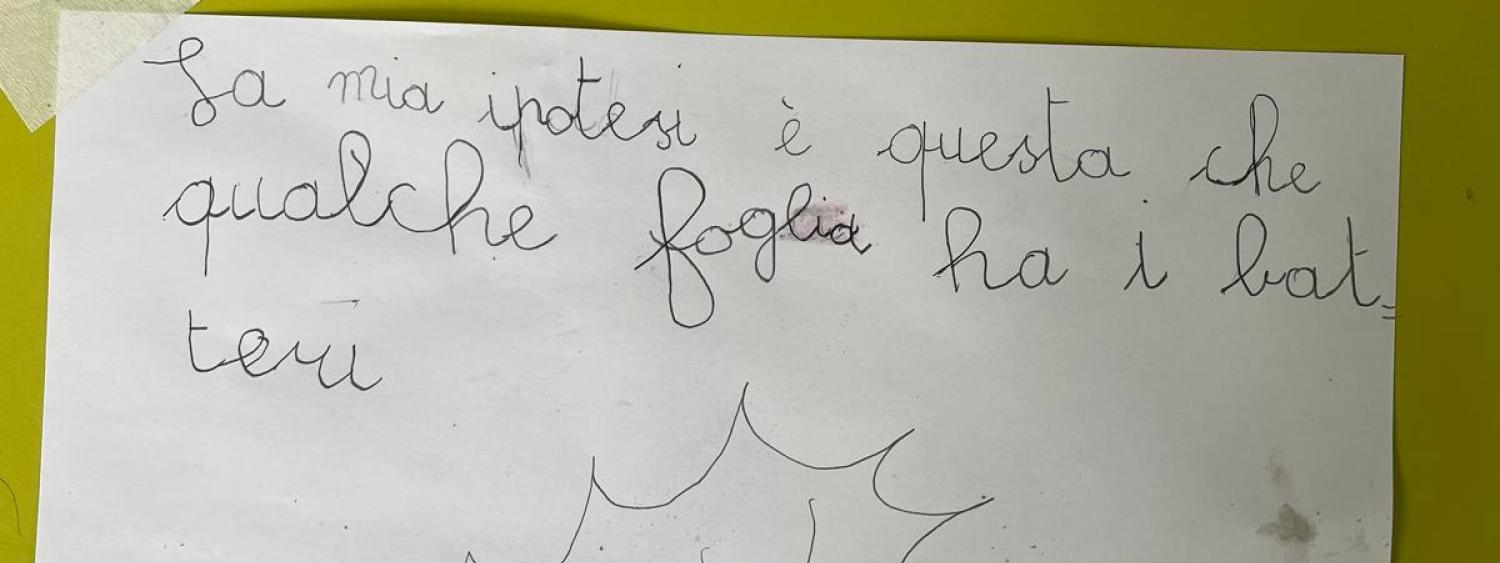 La mia ipotesi è questa che
qualche foglia ha i bat=
teri